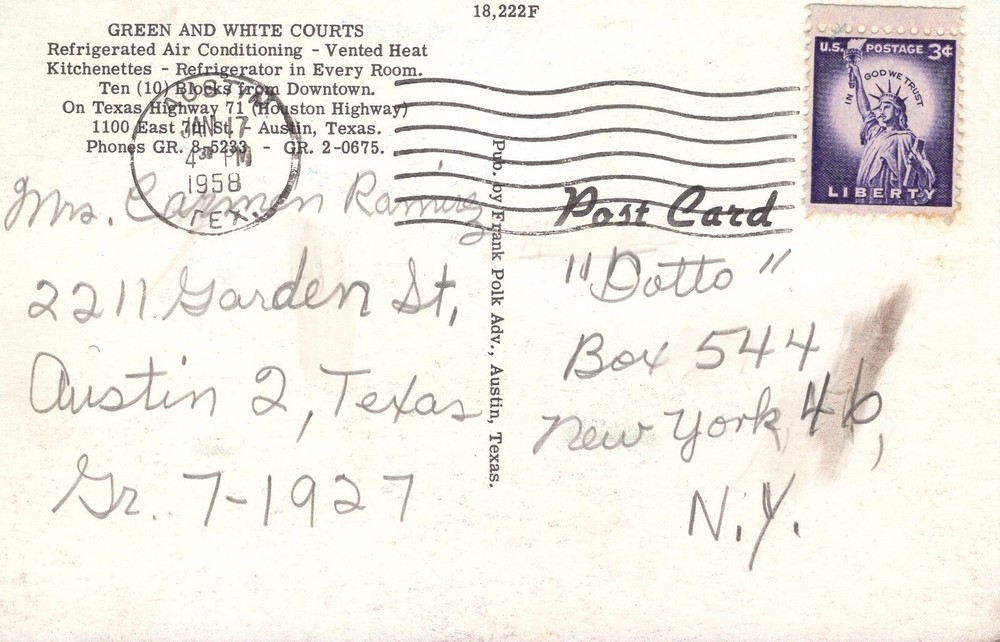 18,222F
GREEN AND WHITE COURTS
Refrigerated Air Conditioning - Vented Heat
Kitchenettes - Refrigerator in Every Room.
Ten (10) Blocks from Downtown.
On Texas Highway 71 (Houston Highway)
1100 East 7th St. - Austin, Texas.
Phones GR. 8-5233 - GR. 2-0675.
AUSTIN
JAN 17
4 30 PM
1958
TEX.
U.S. POSTAGE 3¢
IN GOD WE TRUST
LIBERTY
Post Card
Pub. by Frank Polk Adv., Austin, Texas.
Mrs. Carmen Ramirez
2211 Garden St,
Austin 2, Texas
Gr. 7-1927
"Dotto"
Box 544
New York 46,
N.Y.